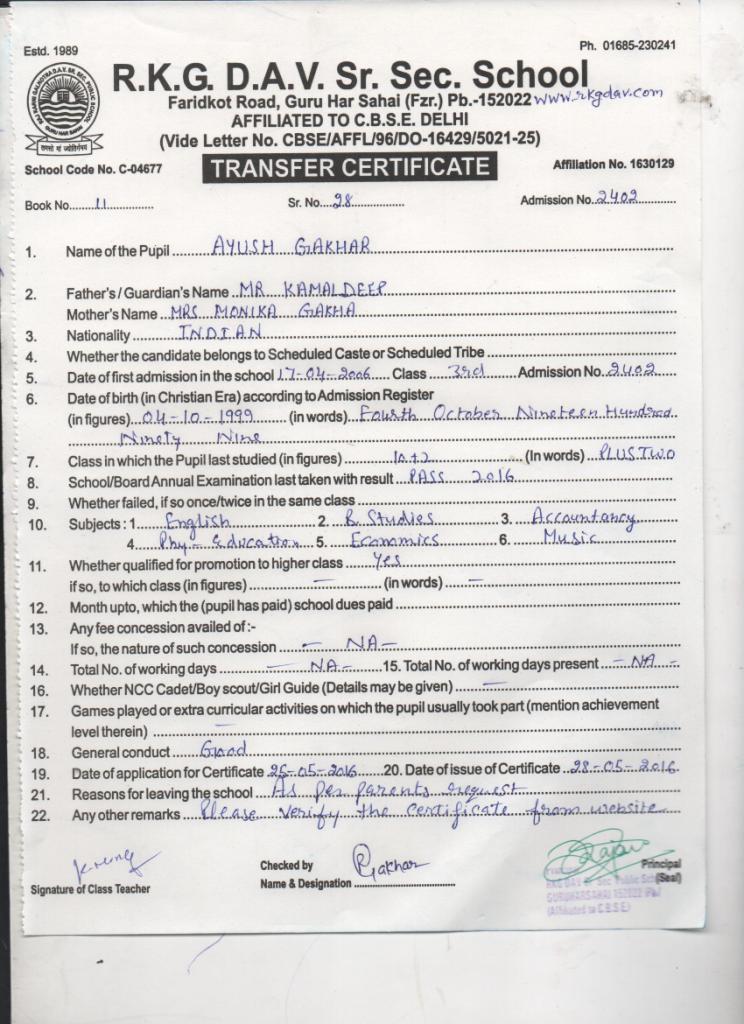 Estd. 1989
Ph. 01685-230241
R.K.G. D.A.V. Sr. Sec. School
Faridkot Road, Guru Har Sahai (Fzr.) Pb.-152022 www.rkgdav.com
AFFILIATED TO C.B.S.E. DELHI
(Vide Letter No. CBSE/AFFL/96/DO-16429/5021-25)
School Code No. C-04677 TRANSFER CERTIFICATE Affiliation No. 1630129
Book No. 11 Sr. No. 28 Admission No. 2402
1. Name of the Pupil AYUSH GAKHAR
2. Father's / Guardian's Name MR KAMALDEEP
Mother's Name MRS MONIKA GAKHA
3. Nationality INDIAN
4. Whether the candidate belongs to Scheduled Caste or Scheduled Tribe
5. Date of first admission in the school 17-04-2006 Class 3rd Admission No. 2402
6. Date of birth (in Christian Era) according to Admission Register
(in figures) 04-10-1999 (in words) Fourth October Nineteen Hundred
Ninety Nine
7. Class in which the Pupil last studied (in figures) 10+2 (In words) PLUS TWO
8. School/Board Annual Examination last taken with result PASS 2016
9. Whether failed, if so once/twice in the same class
10. Subjects : 1 English 2. B. Studies 3. Accountancy
4 Phy-Education 5. Economics 6. Music
11. Whether qualified for promotion to higher class Yes
if so, to which class (in figures) — (in words) —
12. Month upto, which the (pupil has paid) school dues paid
13. Any fee concession availed of :-
If so, the nature of such concession — NA —
14. Total No. of working days — NA — 15. Total No. of working days present — NA —
16. Whether NCC Cadet/Boy scout/Girl Guide (Details may be given) —
17. Games played or extra curricular activities on which the pupil usually took part (mention achievement
level therein) —
18. General conduct Good
19. Date of application for Certificate 25-05-2016 20. Date of issue of Certificate 28-05-2016
21. Reasons for leaving the school As per parents request
22. Any other remarks Please verify the certificate from website
Signature of Class Teacher
Checked by Gakhar
Name & Designation
Principal
(Seal)
RKG DAV Sr. Sec. Public School
GURUHARSAHAI 152022 (Pb.)
(Affiliated to C.B.S.E)